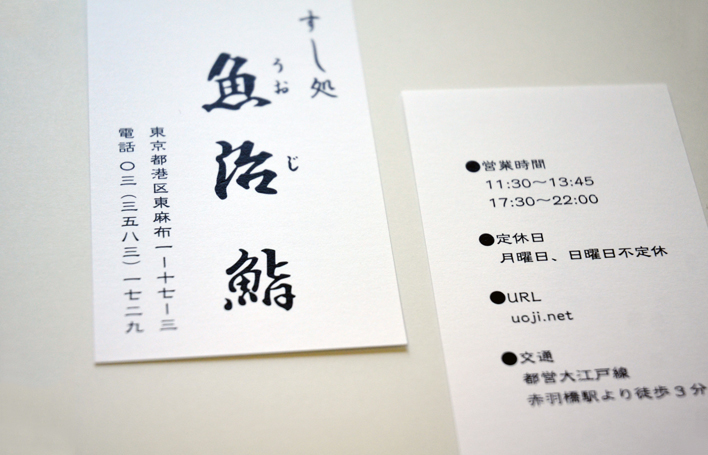 すし処
うおじ
魚治鮨
東京都港区東麻布一ー十七ー三
電話〇三(三五八三)一七二九
●営業時間
11:30〜13:45
17:30〜22:00
●定休日
月曜日、日曜日不定休
●URL
uoji.net
●交通
都営大江戸線
赤羽橋駅より徒歩3分